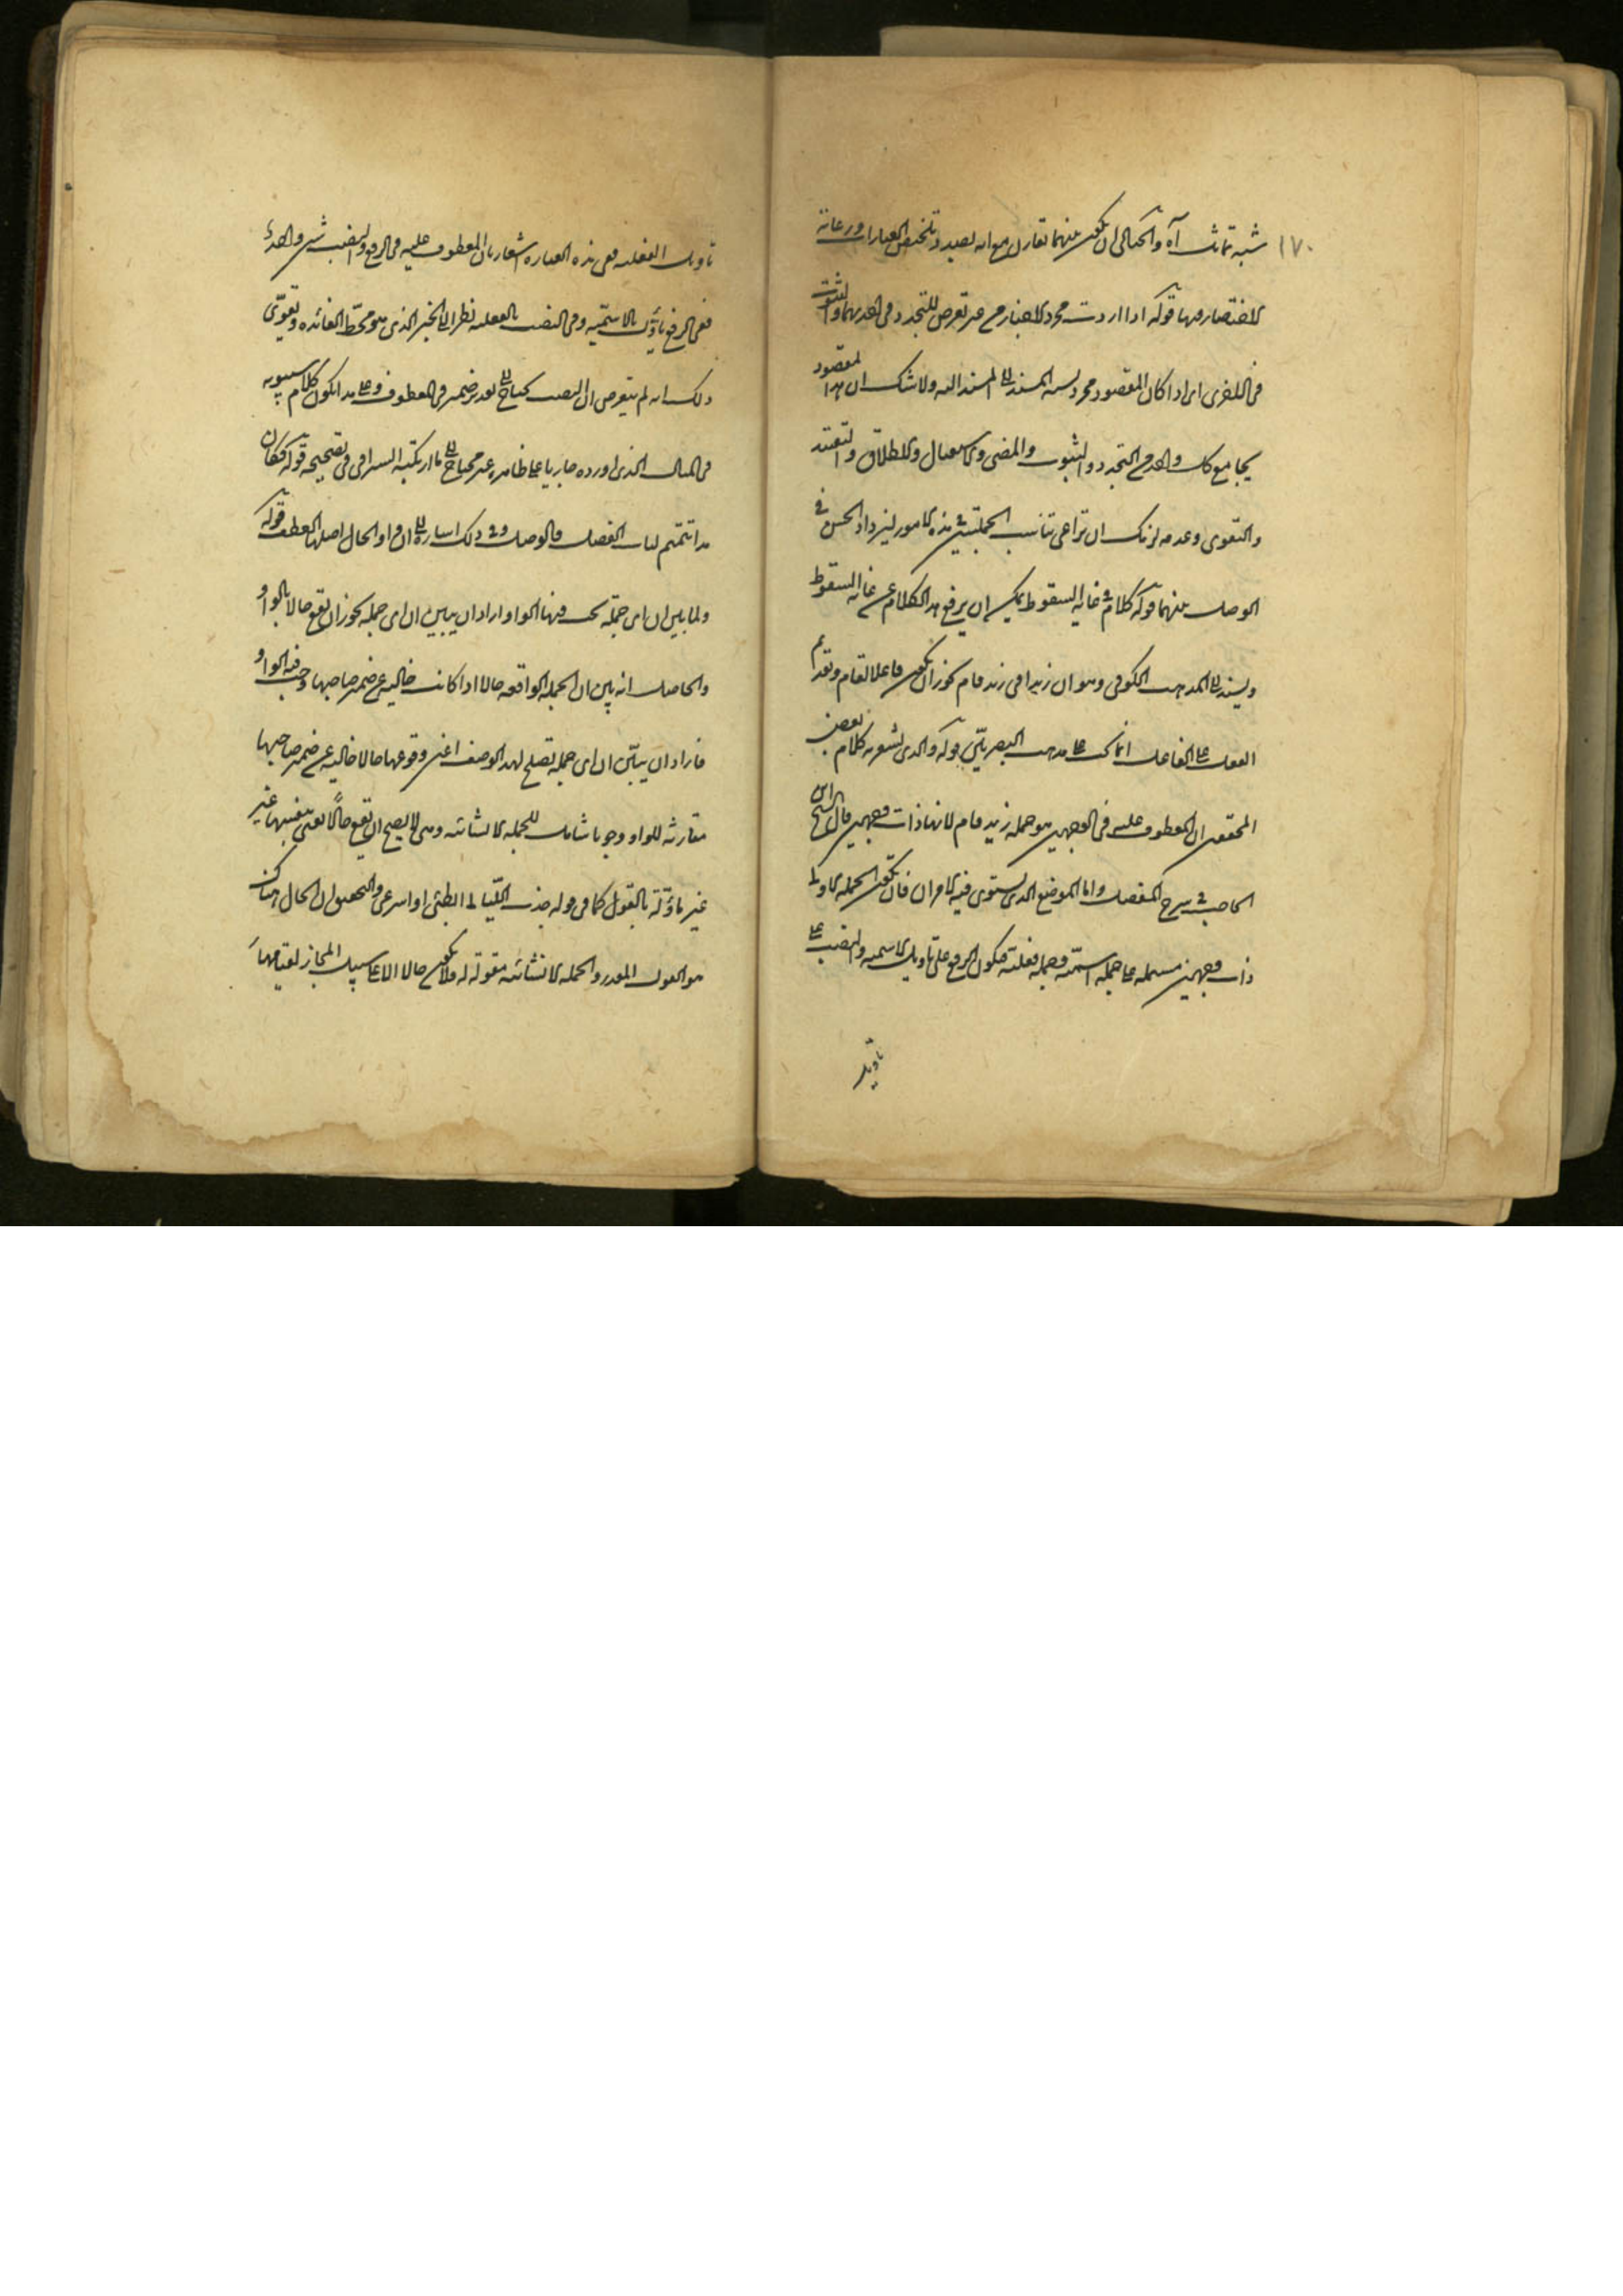 ١٧٠
شبه تماثل آه والخيالى ان يكون بينهما تقارن مع انه بصدد تلخيص العبارات ورعاية
الاختصار فيها قوله اذا اردت مجرد الاخبار من غير تعرض للتجدد فى احديهما والثبوت
فى الاخرى اى اذا كان المقصود مجرد نسبة المسند الى المسند اليه ولا شك ان هذا المقصود
يجامع كل واحد من التجدد والثبوت والمضى والاستقبال والاطلاق والتقييد
والتقوى وعدمه لزمك ان تراعى تناسب الجملتين فى هذه الامور ليزداد الحسن فى
الوصل بينهما قوله كلام فى غاية السقوط يمكن ان يرفع هذا الكلام عن غاية السقوط
ويسند الى المذهب الكوفى وهو ان زيدا فى زيد قام يجوز ان يكون فاعلا لقام وتقديم
الفعل على الفاعل انما على مذهب البصريين قوله والذى يشعر به كلام بعض
المحققين ان المعطوف عليه فى الوجهين هو جملة زيد قام لانها ذات وجهين قال الشيخ ابن
الحاجب فى شرح المفصل واما الموضع الذى يستوى فيه الامران فان يكون الجملة الاولى
ذات وجهين مشتملة على جملة اسمية وجملة فعلية فيكون الرفع على تاويل الاسمية والنصب على
تاويل
تاويل الفعلية ففى هذه العبارة اشعار بان المعطوف عليه فى الرفع والنصب شىء واحد
ففى الرفع ياؤل بالاسمية وفى النصب بالفعلية نظرا الى الخبر الذى هو محط الفائدة وتقوى
ذلك انه لم يتعرض ان النصب يحتاج الى تقدير ضمير فى المعطوف وعلى هذا يكون كلام سيبويه
فى المثال الذى اورده جاريا على ظاهره غير محتاج الى ما ارتكبه السيرافى فى تصحيحه قوله فكان
هذا تتميم لباب الفصل والوصل وفى ذلك اشارة الى ان واو الحال اصلها العطف قوله
ولما بين ان اى جملة يجب فيها الواو اراد ان يبين ان اى جملة يجوز ان تقع حالا بالواو
والحاصل انه بين ان الجملة الواقعة حالا اذا كانت خالية عن ضمير صاحبها وجب فيه الواو
فاراد ان يبين ان اى جملة تصلح لهذا الوصف اعنى وقوعها حالا خالية عن ضمير صاحبها
مقارنة للواو وجوبا شامل للجملة الانشائية وهى لا يصح ان تقع حالا يعنى بنفسها غير
غير ماؤلة بالقول كما فى قوله جذب الليالى ابطئى او اسرعى والتحقيق ان الحال هناك
هو القول المقدر والجملة الانشائية مقولة له ولا يكون حالا الا على سبيل المجاز لقيامها